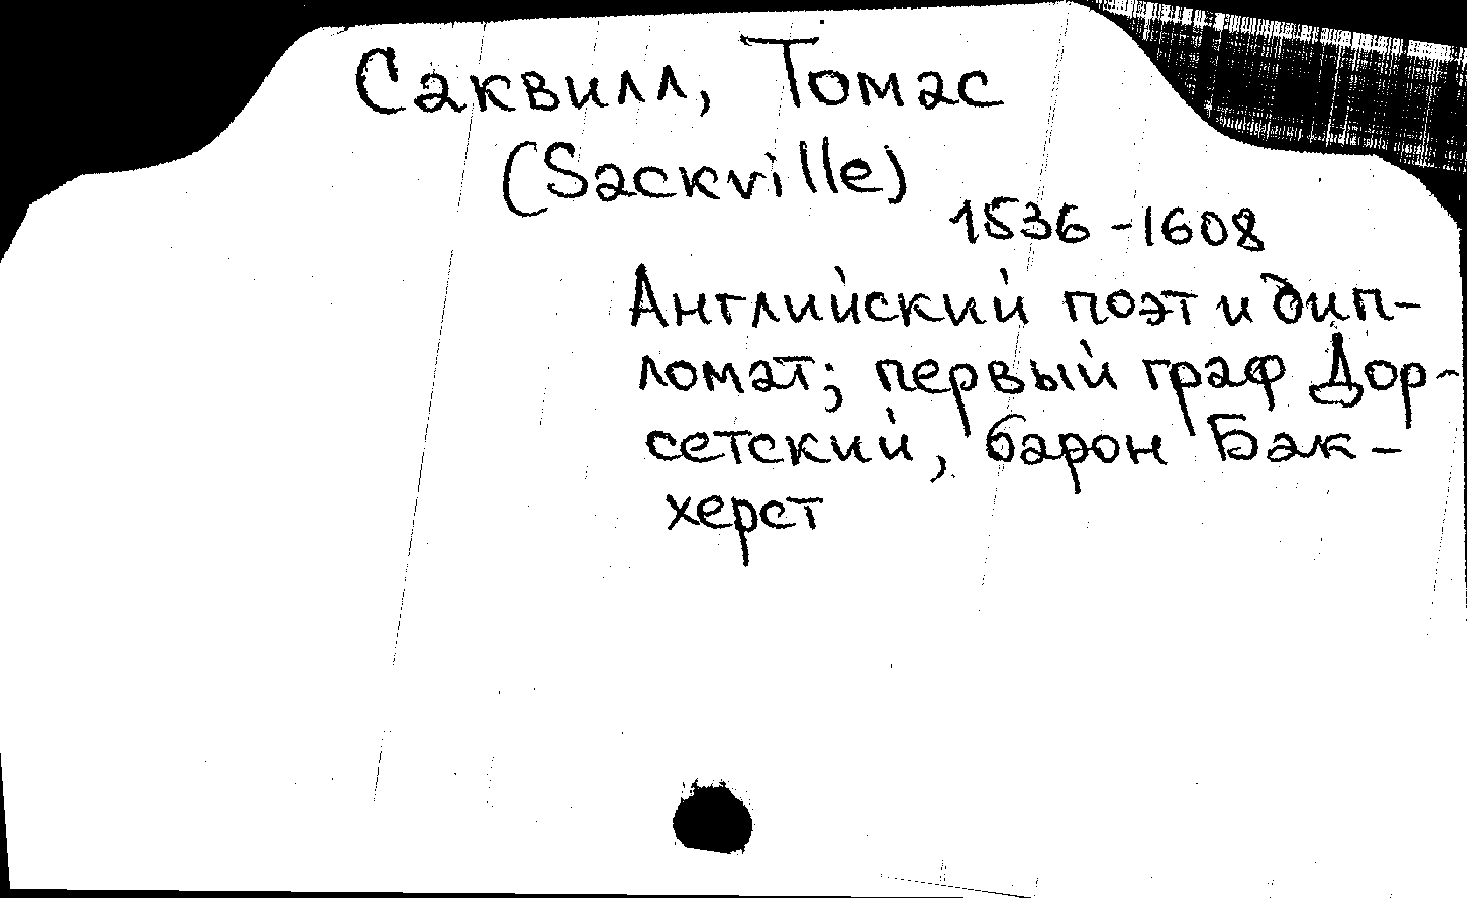 Саквилл, Томас
(Sackville)
1536-1608
Английский поэт и дип-
ломат; первый граф Дор-
сетский, барон Бак-
херст